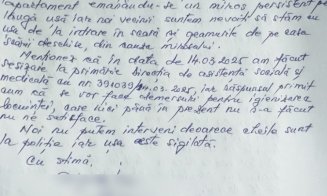 apartament emanându-se un miros persistent pe
lângă ușă iar noi vecinii suntem nevoiți să stăm cu
ușa de la intrare în scară și geamurile de pe casa
scării deschise, din cauza mirosului.
Menționez că în data de 14.03.2025 am făcut
sesizare la primărie direcția de asistență socială și
medicală cu nr. 391039/14.03.2025, iar răspunsul primit
cum că se vor face demersuri pentru igienizarea
locuinței, care nici până în prezent nu s-a făcut
nu ne satisface.
Noi nu putem interveni deoarece cheile sunt
la poliție iar ușa este sigilată.
Cu stimă,